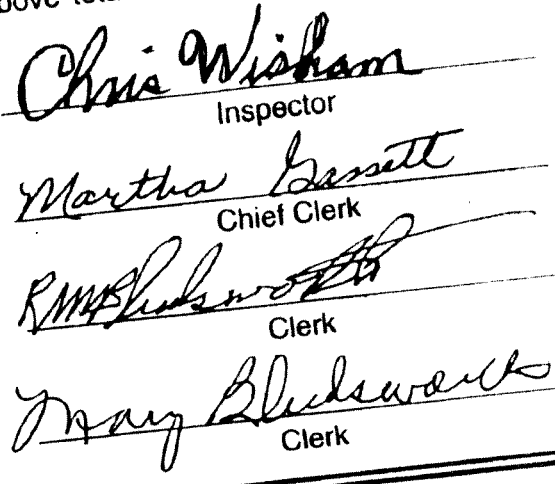 Chris Wisham
Inspector
Martha Gassett
Chief Clerk
RMBludsworth
Clerk
Mary Bludsworth
Clerk